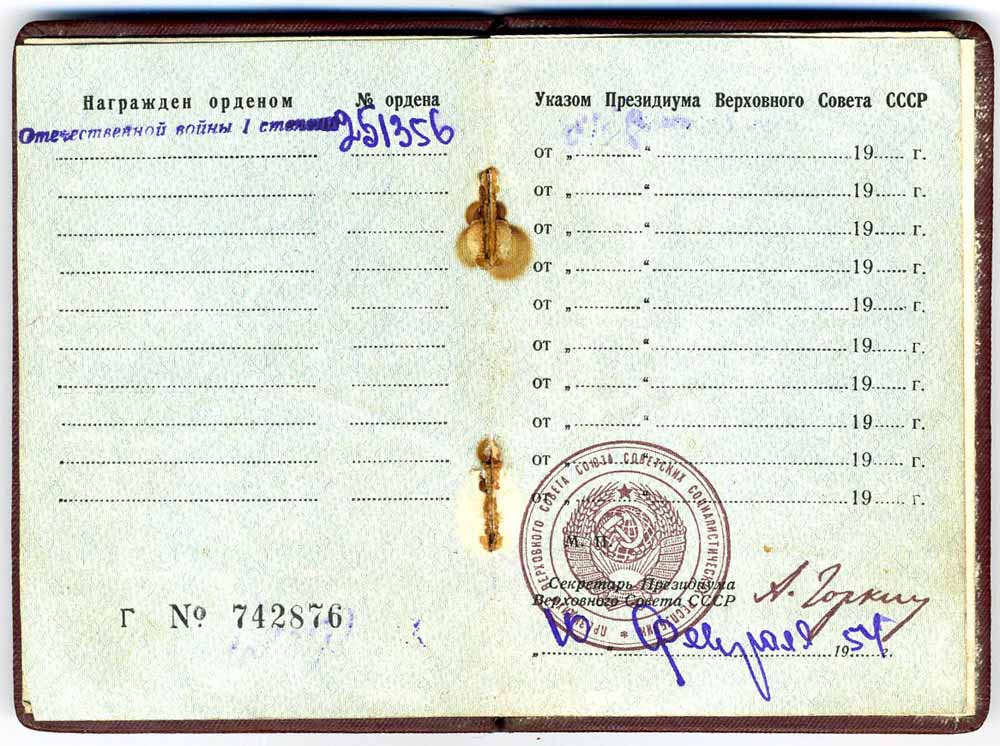 Награжден орденом № ордена
Отечественной войны I степени 251356
Г № 742876
Указом Президиума Верховного Совета СССР
от „ “ 19 г.
от „ “ 19 г.
от „ “ 19 г.
от „ “ 19 г.
от „ “ 19 г.
от „ “ 19 г.
от „ “ 19 г.
от „ “ 19 г.
от „ “ 19 г.
от „ “ 19 г.
ПРЕЗИДИУМ ВЕРХОВНОГО СОВЕТА СОЮЗА СОВЕТСКИХ СОЦИАЛИСТИЧЕСКИХ РЕСПУБЛИК
М. П.
Секретарь Президиума
Верховного Совета СССР
А. Горкин
„10“ Февраля 1954 г.